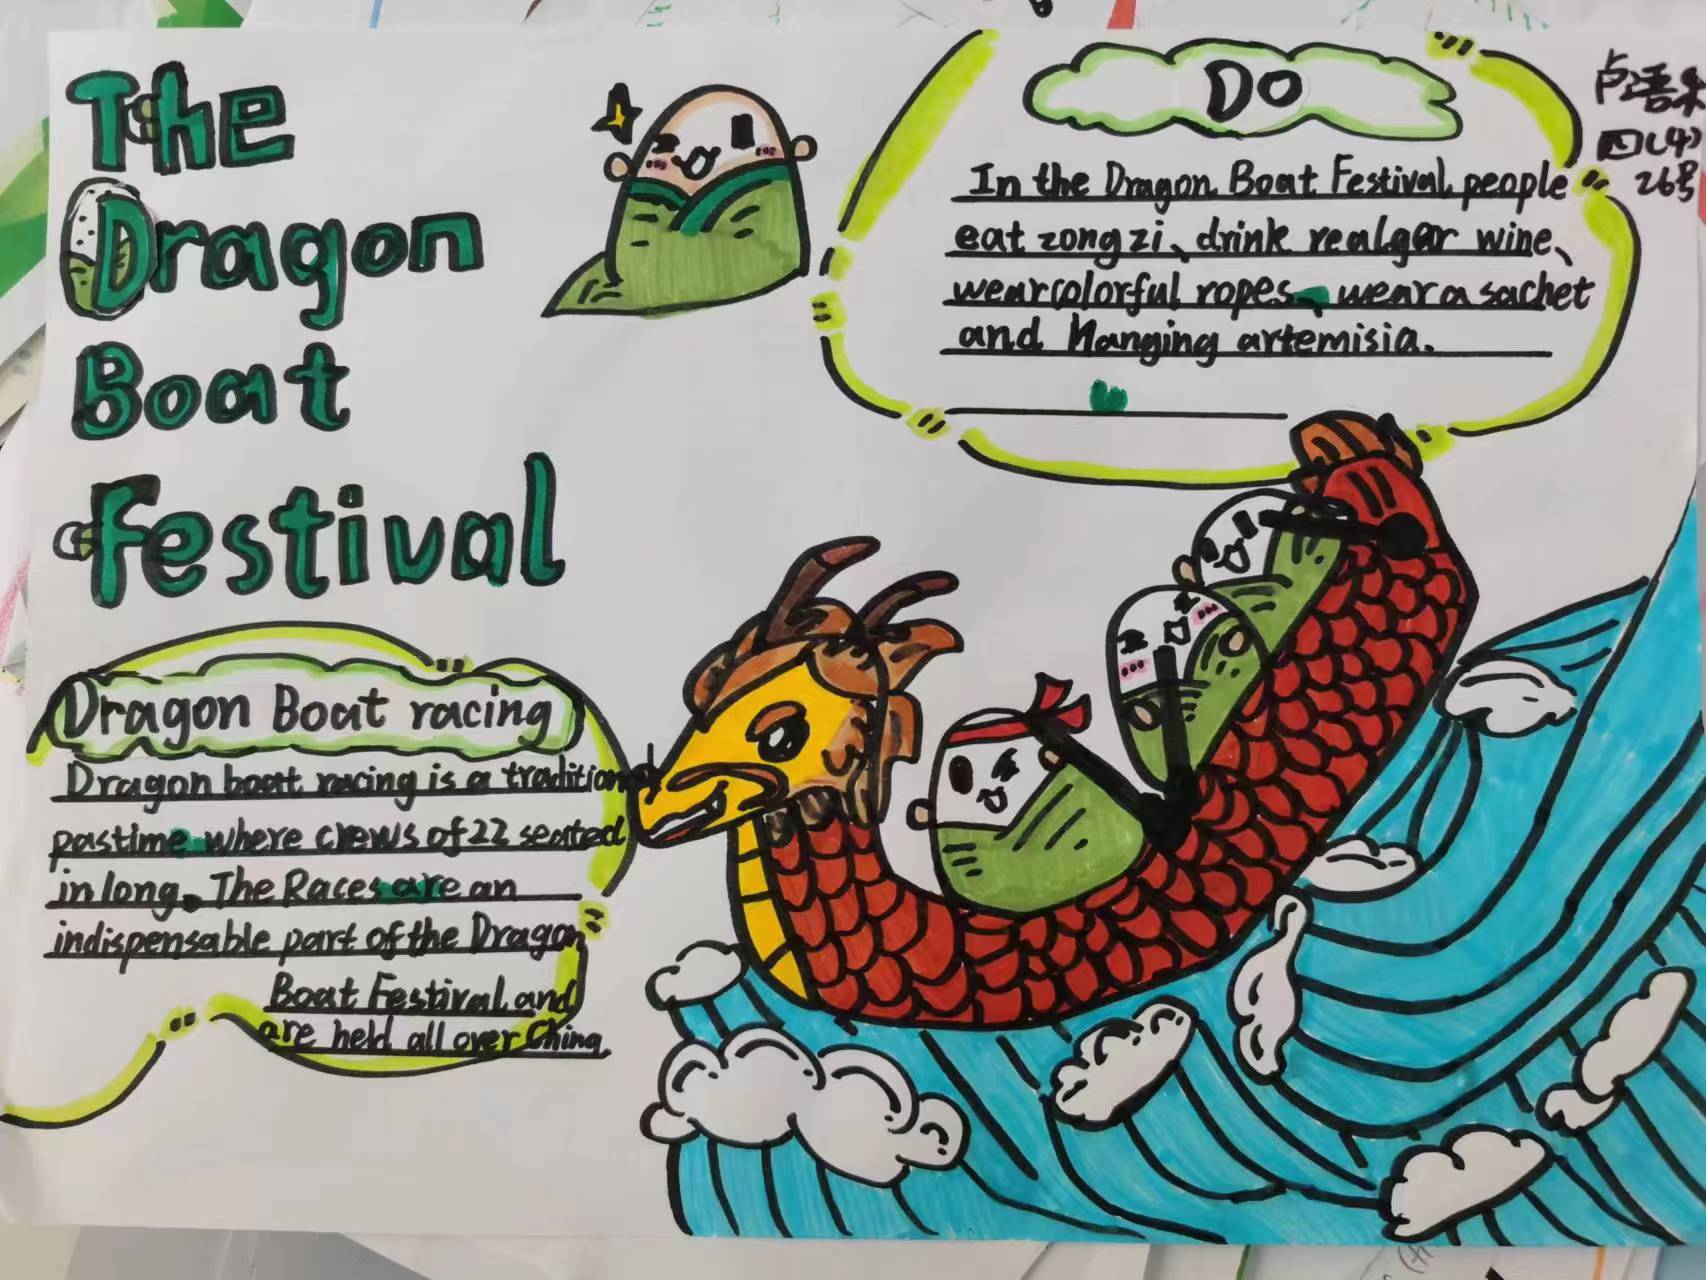 The
Dragon
Boat
Festival
DO
In the Dragon Boat Festival, people
eat zongzi、drink realgar wine、
wear colorful ropes、wear a sachet
and Hanging artemisia.
四(4)
26号
Dragon Boat racing
Dragon boat racing is a traditional
pastime where crews of 22 seated
in long. The Races are an
indispensable part of the Dragon
Boat Festival and
are held all over China.